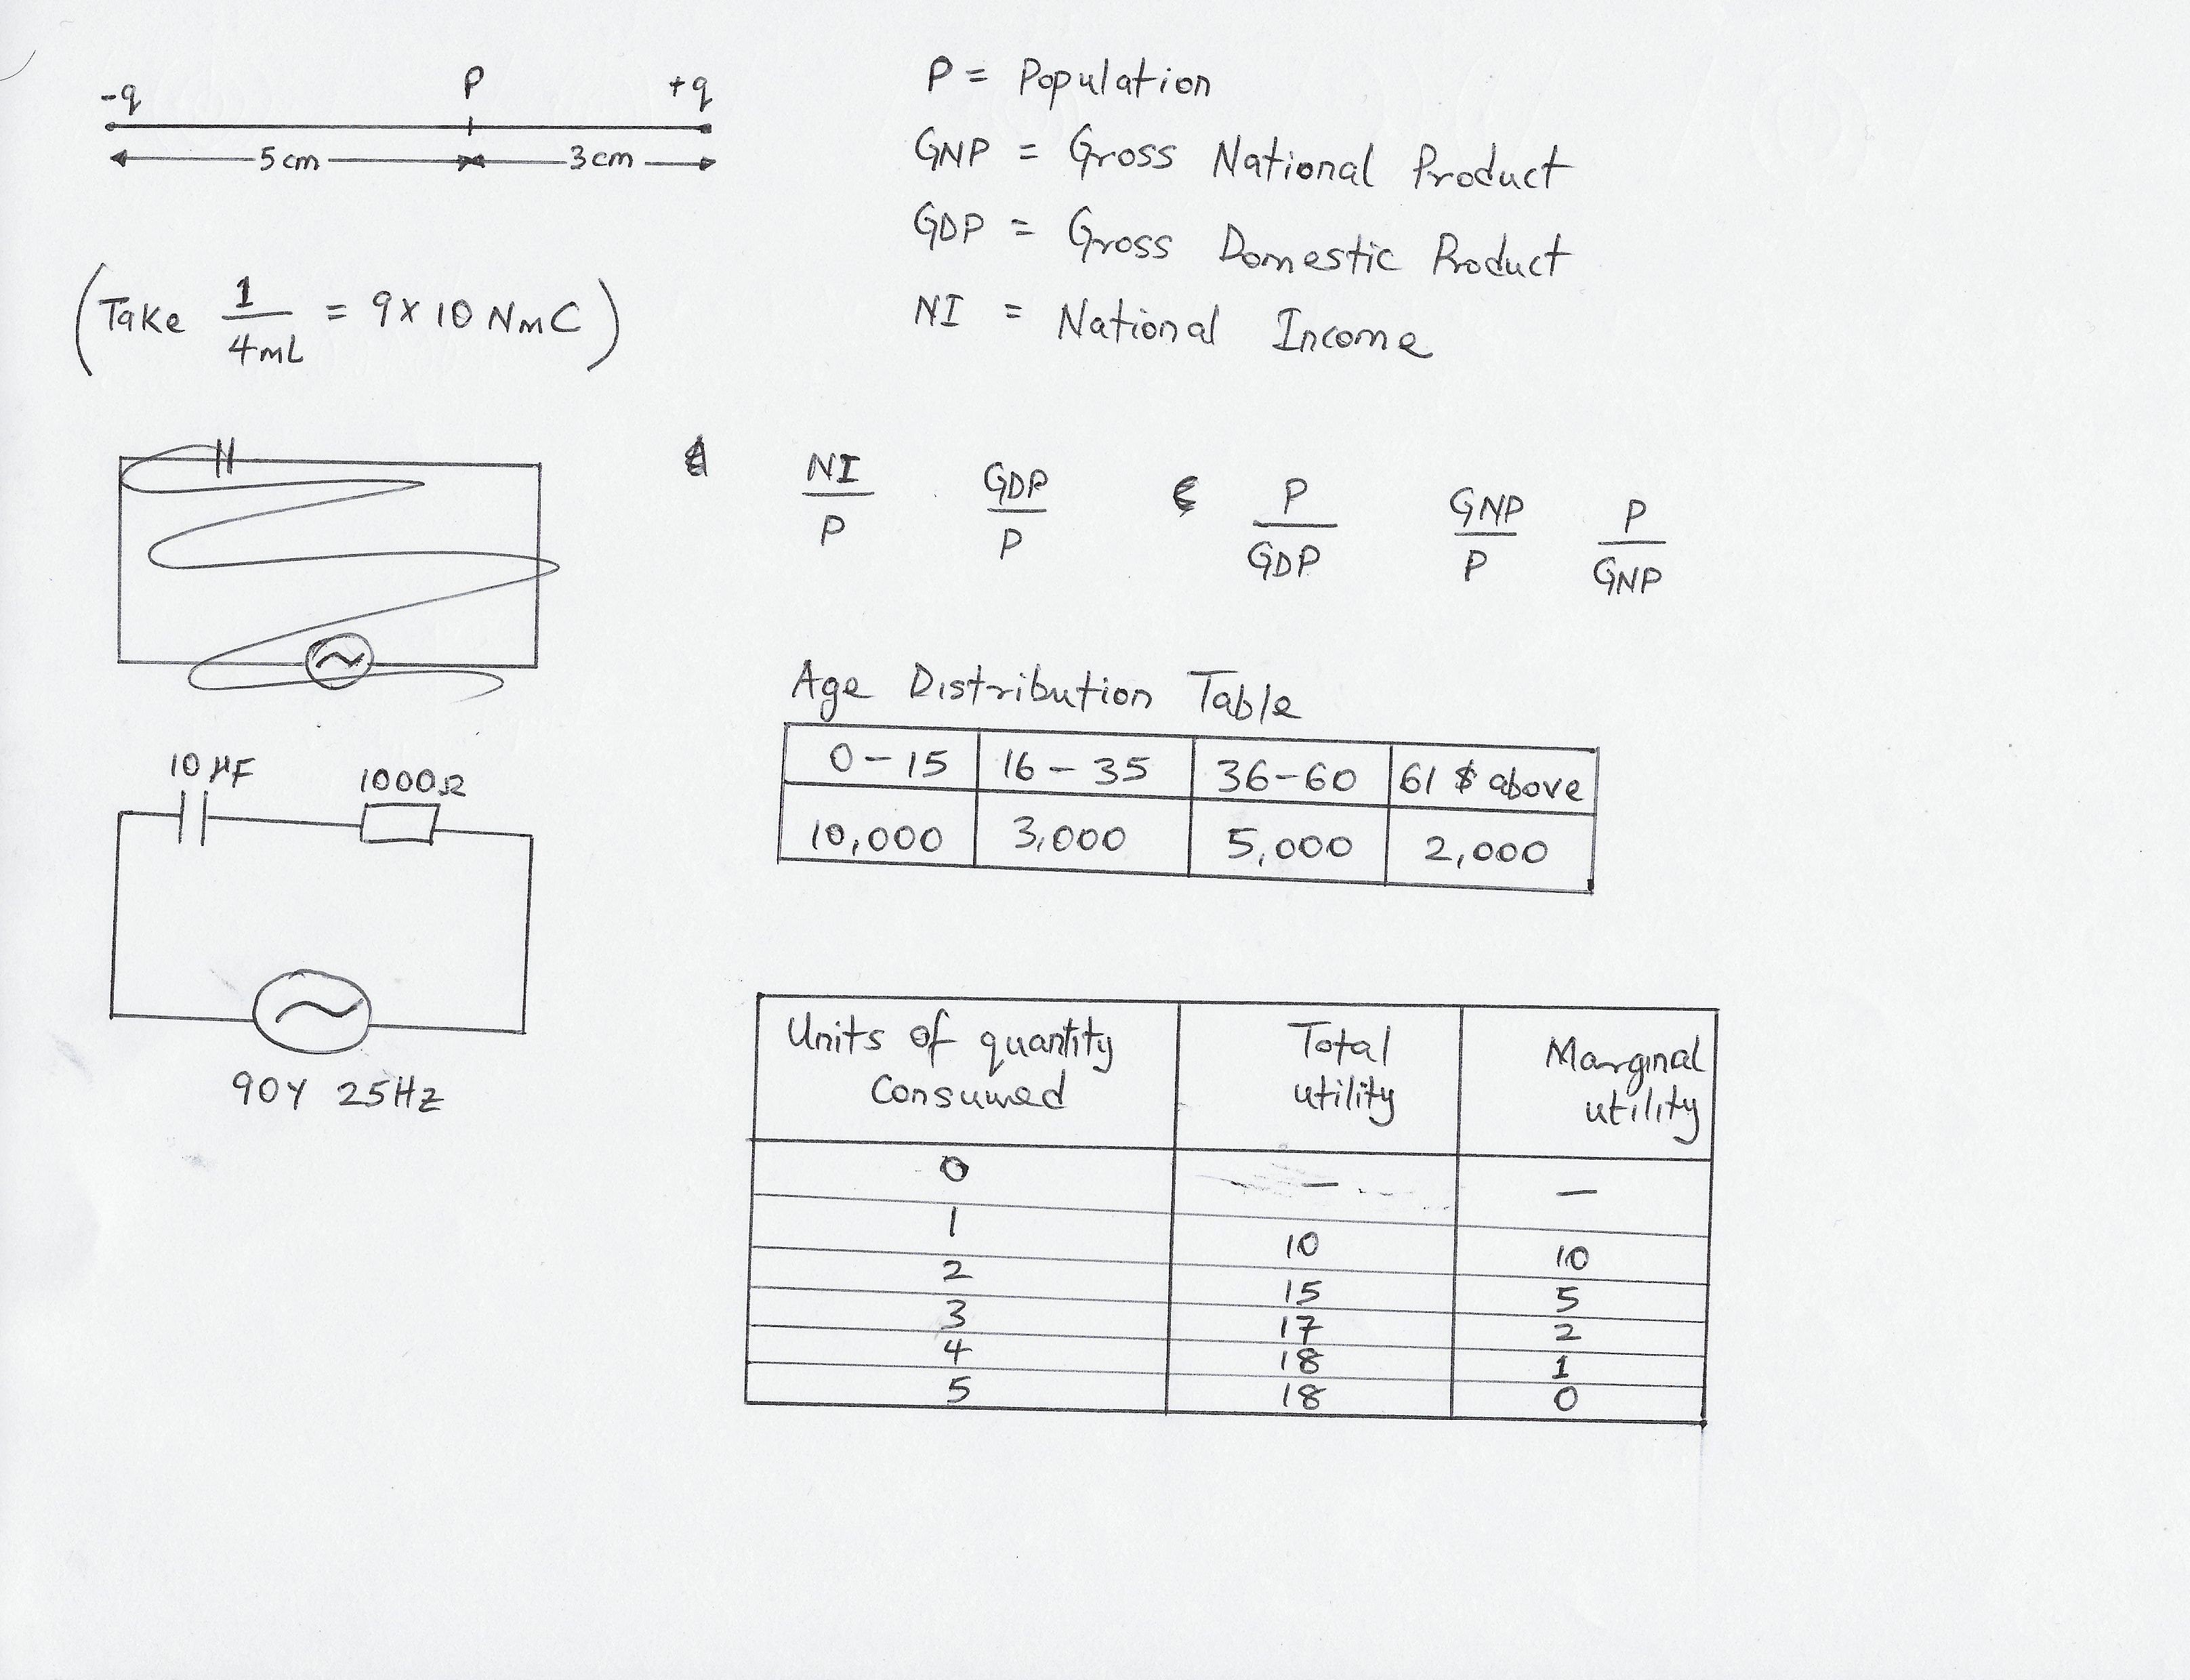 -q P +q
5cm 3cm
(Take 1/4mL = 9 x 10 NmC)
10 μF 1000Ω
90Y 25Hz
P = Population
GNP = Gross National Product
GDP = Gross Domestic Product
NI = National Income
NI/P GDP/P P/GDP GNP/P P/GNP
Age Distribution Table
0-15 16-35 36-60 61 $ above
10,000 3,000 5,000 2,000
Units of quantity Consumed Total utility Marginal utility
0 — —
1 10 10
2 15 5
3 17 2
4 18 1
5 18 0